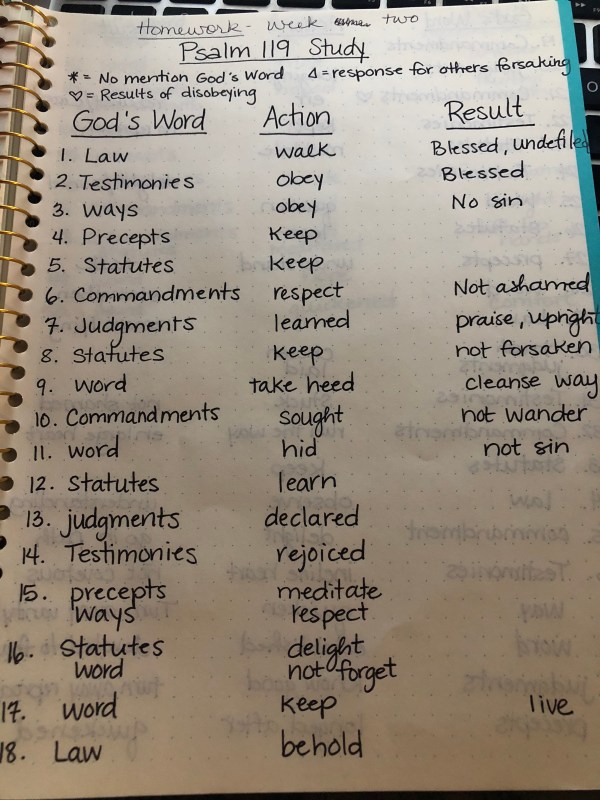 Homework - Week two
Psalm 119 Study
* = No mention God's Word  Δ = response for others forsaking
♡ = Results of disobeying
God's Word  Action  Result
1. Law  walk  Blessed, undefiled
2. Testimonies  obey  Blessed
3. Ways  obey  No sin
4. Precepts  Keep
5. Statutes  Keep
6. Commandments  respect  Not ashamed
7. Judgments  learned  praise, upright
8. Statutes  Keep  not forsaken
9. Word  take heed  cleanse way
10. Commandments  sought  not wander
11. word  hid  not sin
12. Statutes  learn
13. judgments  declared
14. Testimonies  rejoiced
15. precepts  meditate
ways  respect
16. Statutes  delight
word  not forget
17. word  Keep  live
18. Law  behold